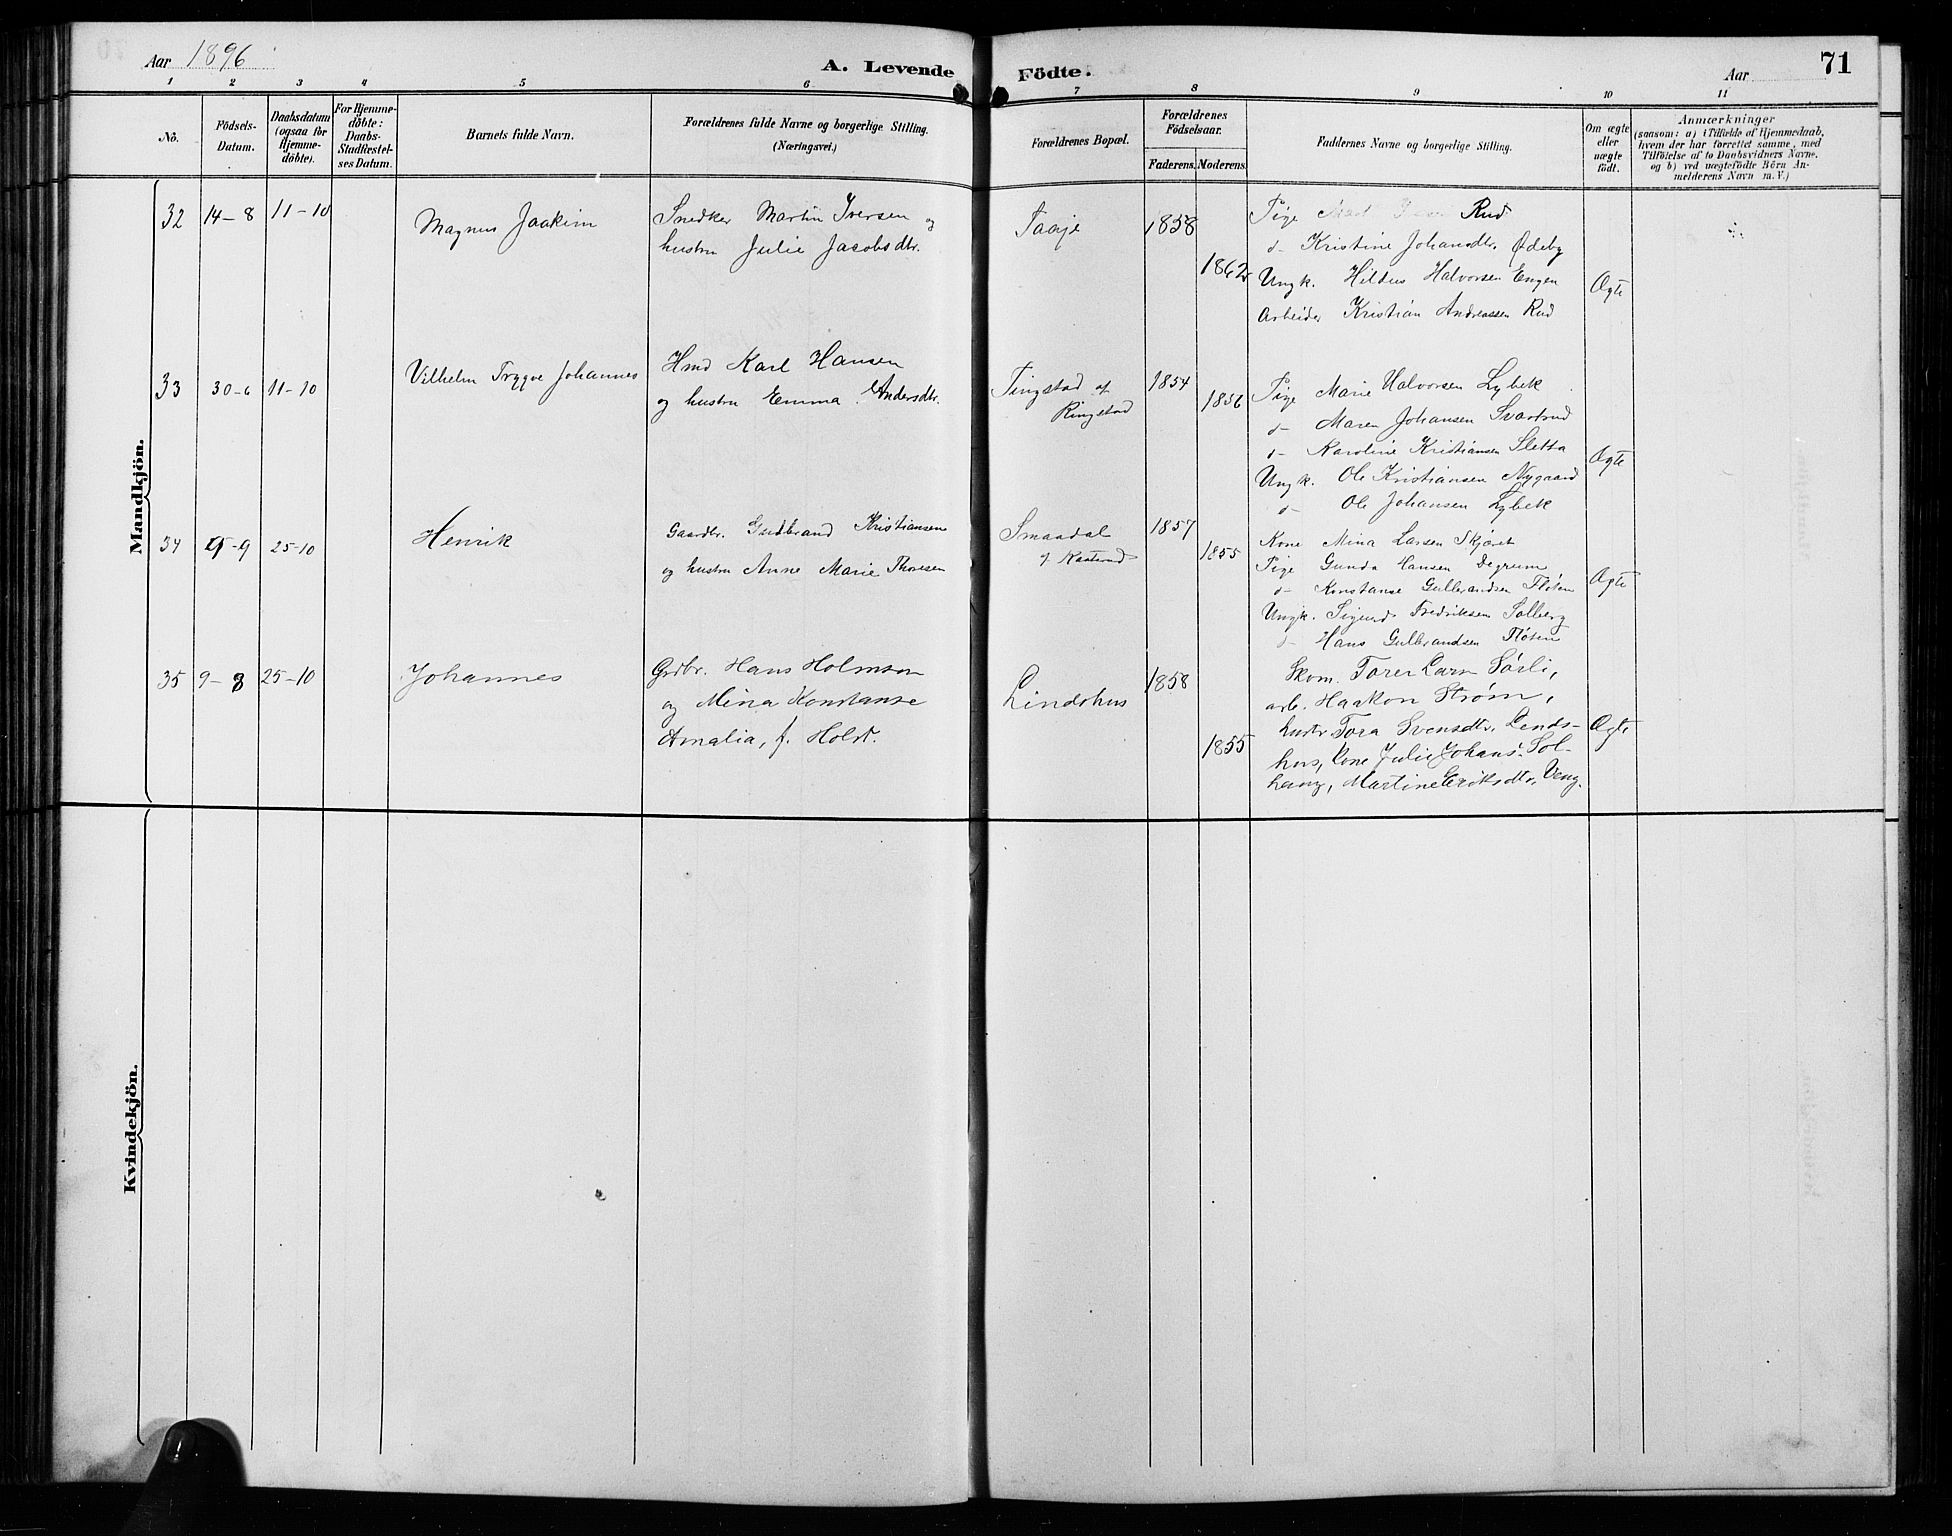 Aar 1896
A. Levende Födte.
Aar
71
1 2 3 4 5 6 7 8 9 10 11
No.
Födsels-
Datum.
Daabsdatum
(ogsaa for
Hjemme-
döbte).
For Hjemme-
döbte:
Daabs-
Stadfæstel-
ses Datum.
Barnets fulde Navn.
Forældrenes fulde Navne og borgerlige Stilling.
(Næringsvei.)
Forældrenes Bopæl.
Forældrenes
Födselsaar.
Faderens. Moderens.
Faddernes Navne og borgerlige Stilling.
Om ægte
eller
uægte
födt.
Anmærkninger
(saasom: a) i Tilfælde af Hjemmedaab,
hvem der har forrettet samme, med
Tilföielse af to Daabsvidners Navne.
og b) ved uægtefödte Börn An-
melderens Navn m. V.)
Mandkjön.
32 14-8 11-10
Magnus Joakim
Snedker Martin Iversen og
hustru Julie Jacobsdtr.
Taaje
1858
1862
Pige Rud
d- Kristine Johansdtr. Ødeby
Ungk. Hildus Halvorsen Engen
Arbeider Kristian Andreassen Rud
Ægte
33 30-6 11-10
Vilhelm Trygve Johannes
Hmd Karl Hansen
og hustru Emma Andersdtr.
Tingstad af
Ringstad
1854
1856
Pige Marie Halvorsen Lybek
d- Maren Johansen Svartrud
d- Karoline Kristiansen Sletta
Ungk. Ole Kristiansen Nygaard
d- Ole Johansen Lybek
Ægte
34 9-9 25-10
Henrik
Gaardbr. Gudbrand Kristiansen
og hustru Anne Marie Thoresen
Smaadal
af
1857
1855
Kone Mina Larsen Skjæret
Pige Gunda Hansen Degrum
d- Konstanse Gulbrandsen Fløten
Ungk. Sigurd Fredriksen Solberg
d- Hans Gulbrandsen Fløten
Ægte
35 9-8 25-10
Johannes
Grdbr. Hans Holmson
og Mina Konstanse
Amalia, f. Holst.
Lindshus
1858
1855
Skom. Torer Larsn Sørli,
arb. Haakon Strøm,
hustr. Tora Svensdtr. Lends-
hus, Kone Julie Johans. Sol-
haug, Martine Eriksdtr. Veng.
Ægte
Kvindekjön.